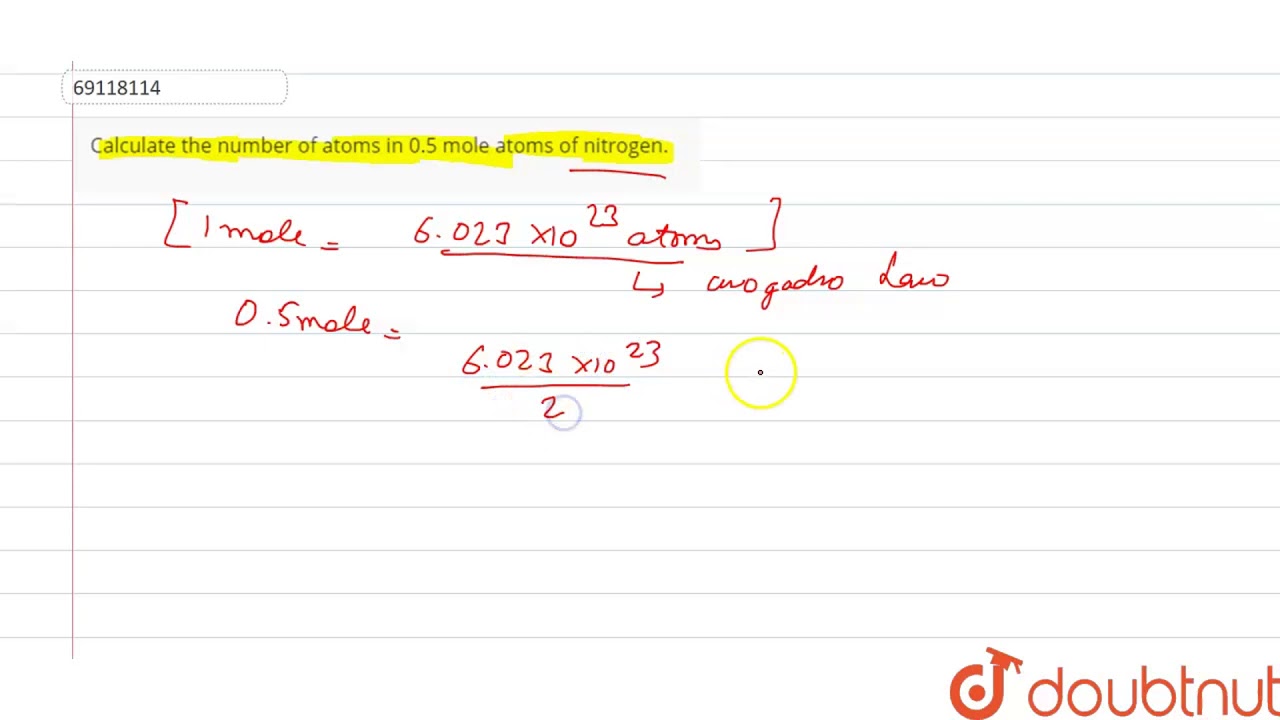 69118114
Calculate the number of atoms in 0.5 mole atoms of nitrogen.
[ 1 mole = 6.023 ×10^23 atoms ]
↳ avogadro Law
0.5 mole =
6.023 ×10^23
2
doubtnut